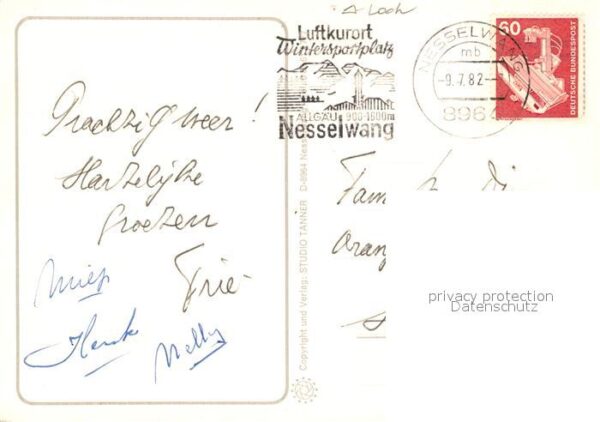 Luftkurort
Wintersportplatz
ALLGÄU 900-1600m
Nesselwang
NESSELWANG
mb
-9.7.82-
8964
60
DEUTSCHE BUNDESPOST
Prachtig weer!
Hartelijke
groeten
Miep
Henk
Nelly
Copyright und Verlag: STUDIO TANNER D-8964 Ness
Fam
Oran
privacy protection
Datenschutz